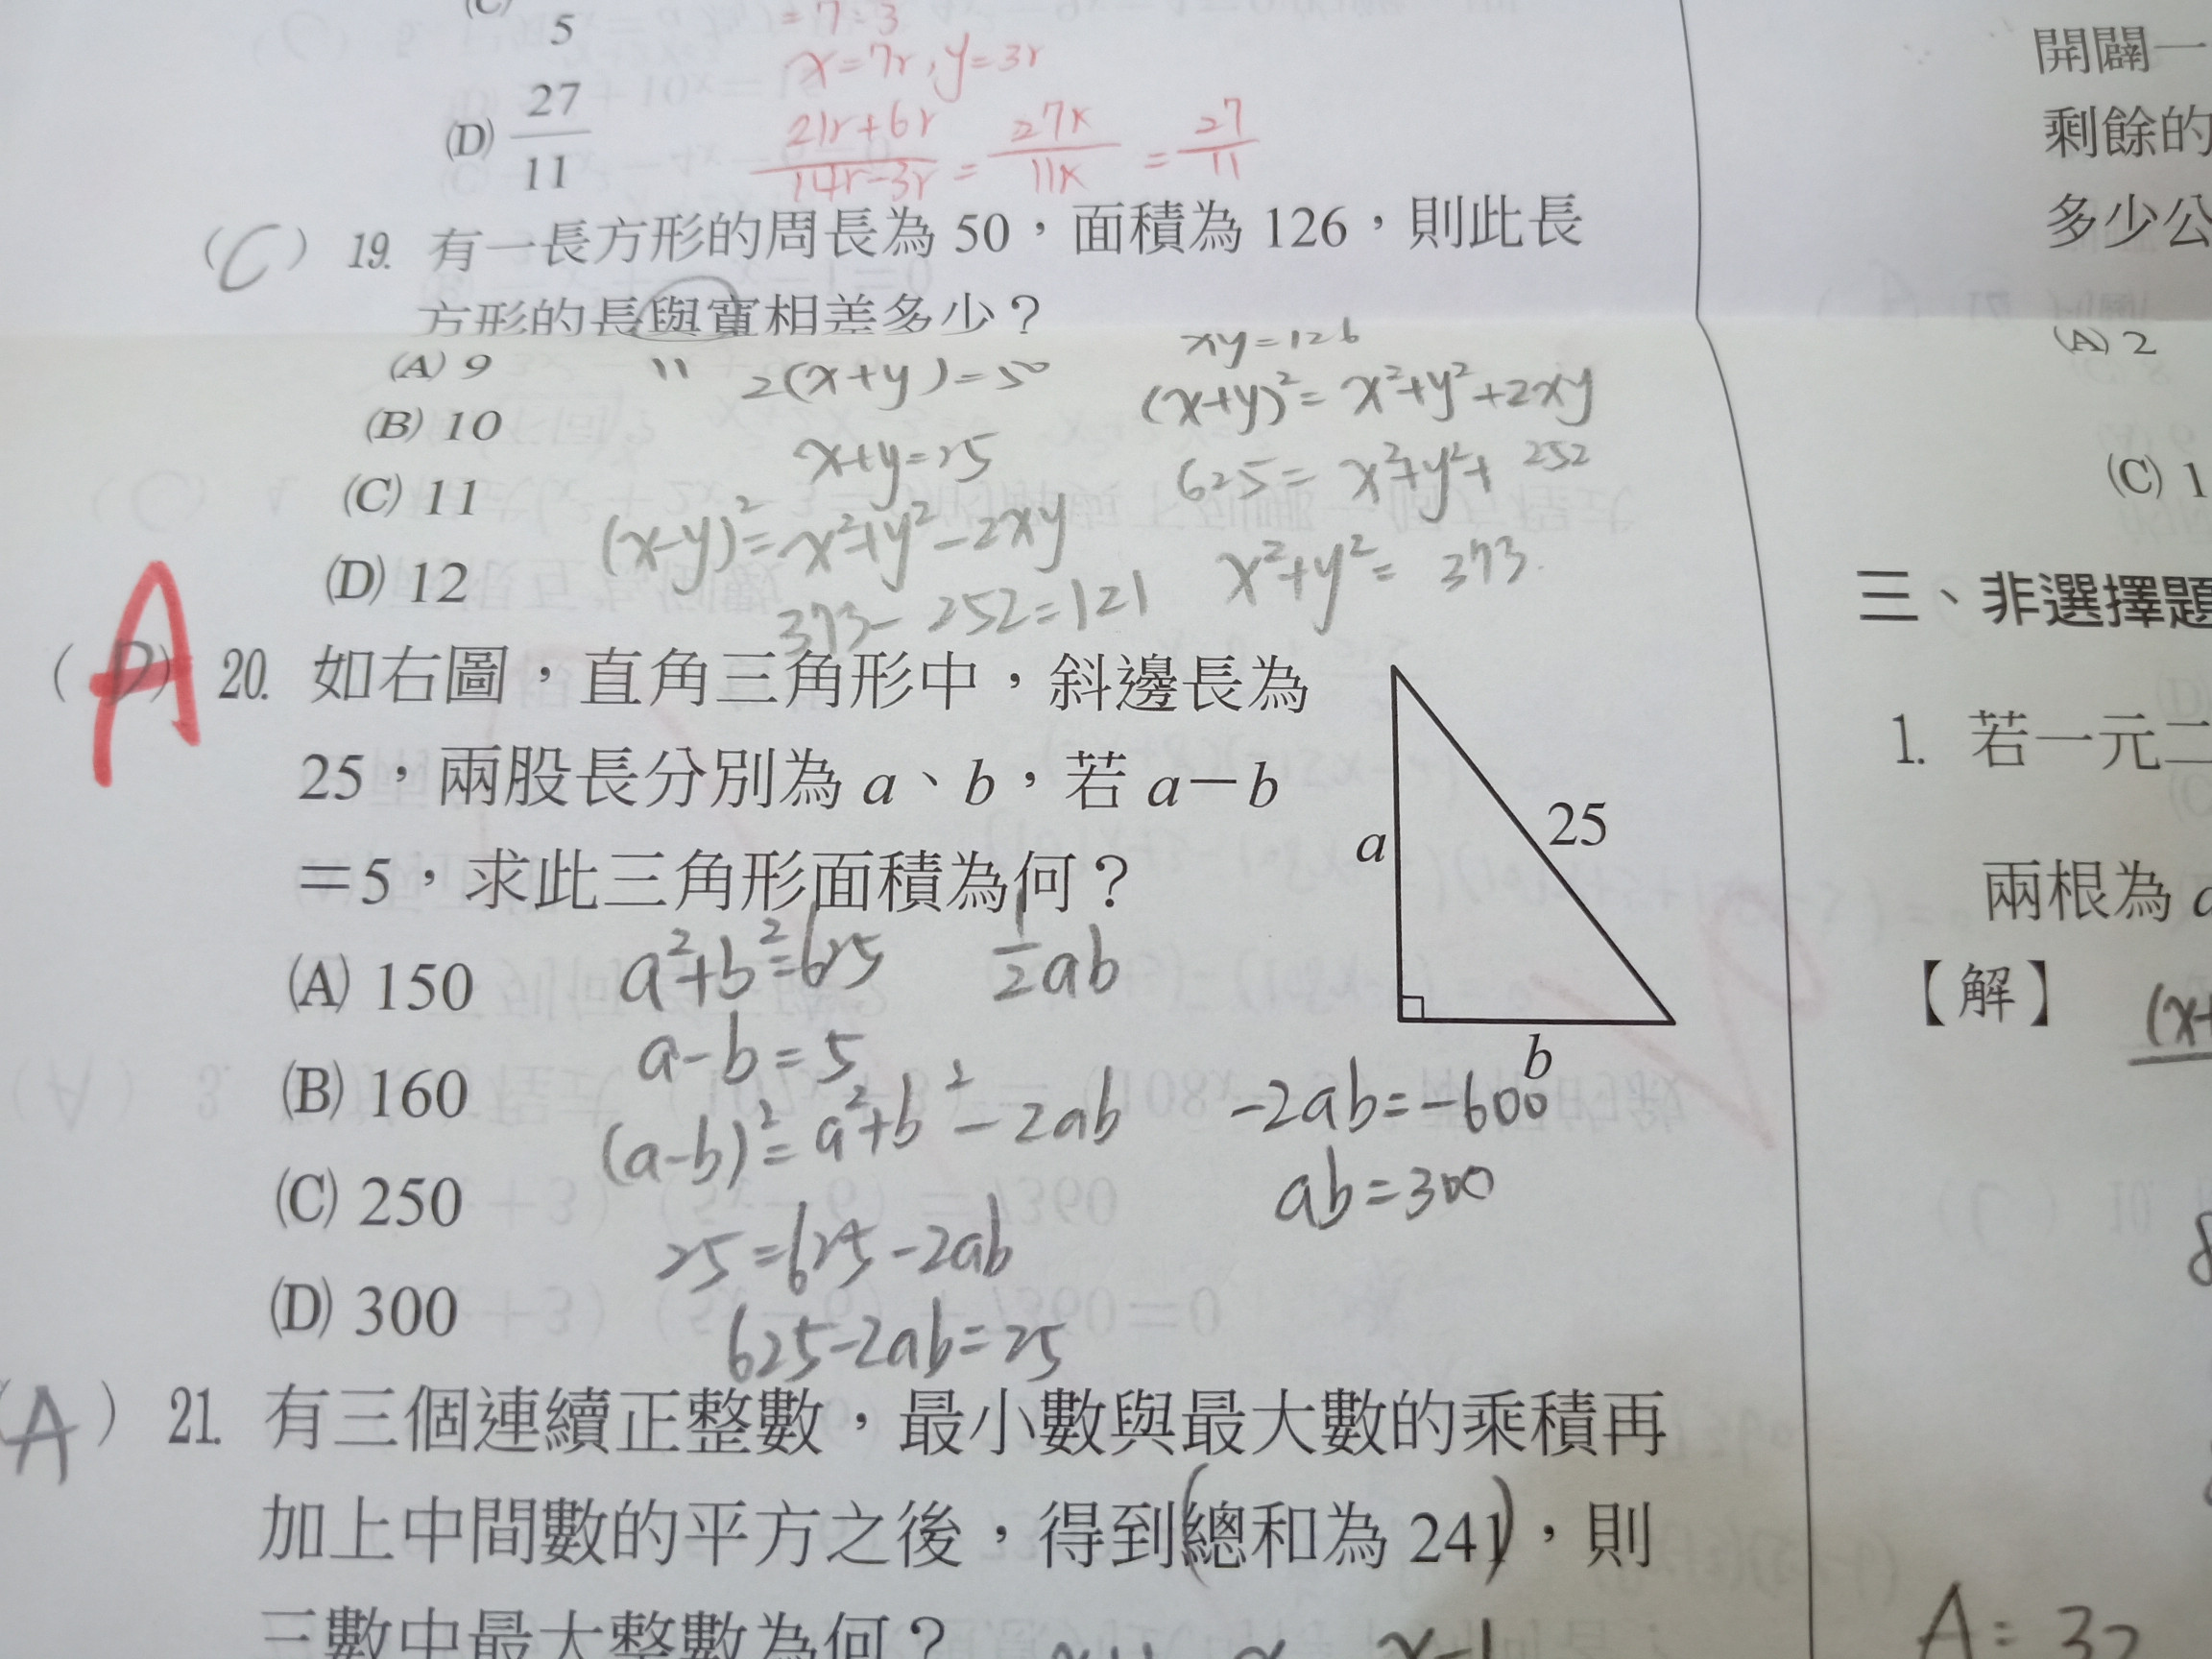 5
= 7 : 3
x=7r, y=3r
(D) 27/11
21r+6r/14r-3r = 27r/11r = 27/11
(C) 19. 有一長方形的周長為 50，面積為 126，則此長
方形的長與寬相差多少？
(A) 9
(B) 10
(C) 11
(D) 12
11
2(x+y)=50
x+y=25
(x-y)²=x²+y²-2xy
373-252=121
xy=126
(x+y)²=x²+y²+2xy
625=x²+y²+252
x²+y²=373
(D) A 20. 如右圖，直角三角形中，斜邊長為
25，兩股長分別為 a、b，若 a－b
＝5，求此三角形面積為何？
a
25
b
(A) 150
(B) 160
(C) 250
(D) 300
a²+b²=625
1/2 ab
a-b=5
(a-b)²=a²+b²-2ab
25=625-2ab
625-2ab=25
-2ab=-600
ab=300
(A) 21. 有三個連續正整數，最小數與最大數的乘積再
加上中間數的平方之後，得到(總和為 241)，則
三數中最大整數為何？
開闢一
剩餘的
多少公
(A) 2
(C) 1
三、非選擇題
1. 若一元二
兩根為
【解】
(x+
A=32